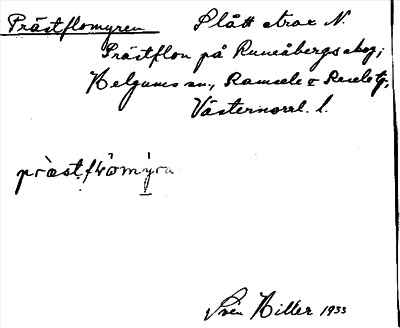 Prästflomyren Slått strax N.
Prästflon på Runsåbergs skog,
Helgums sn, Ramsele & Resele tg,
Västernorrl. l.
Sven Hiller 1933